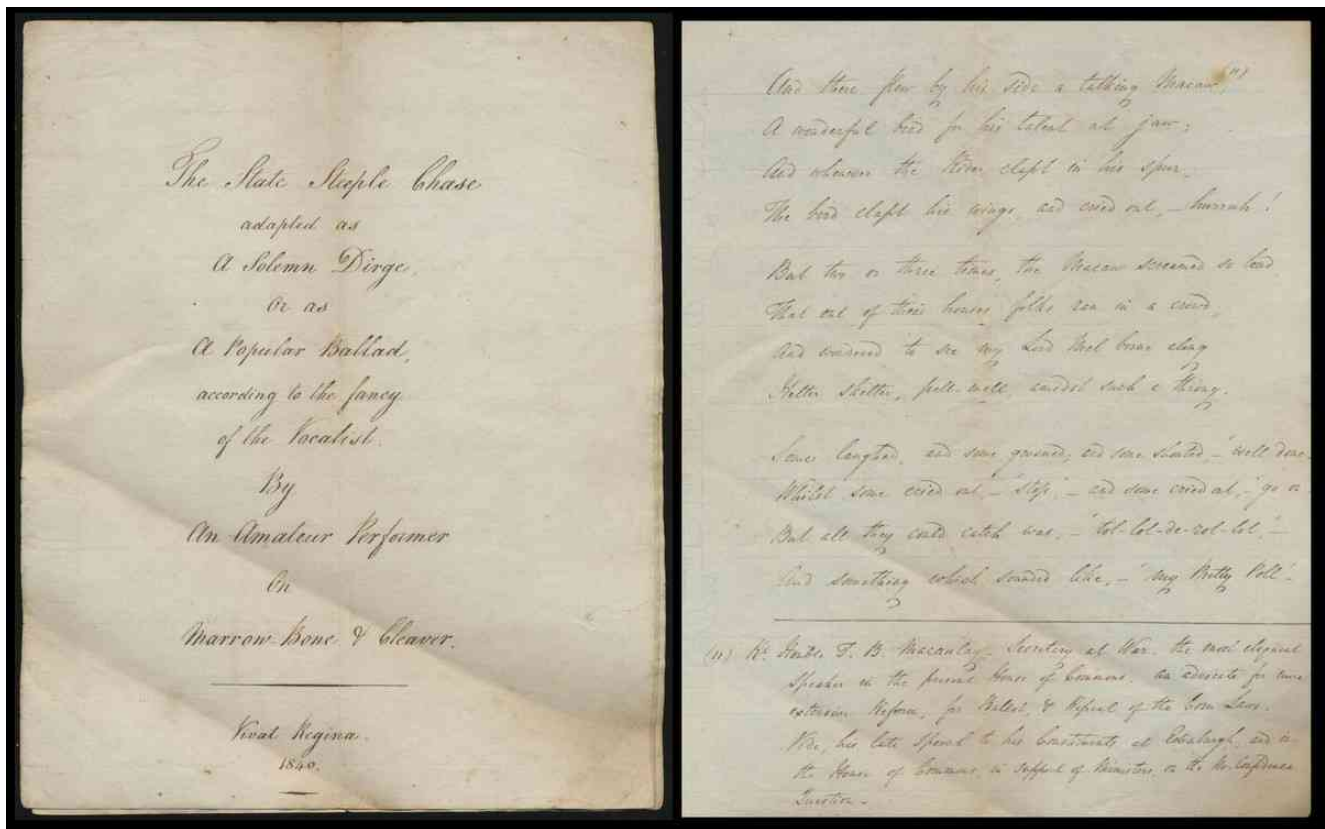 The State Steeple Chase
adapted as
A Solemn Dirge,
Or as
A Popular Ballad,
according to the fancy
of the Vocalist.
By
An Amateur Performer
On
Marrow-Bone & Cleaver.
Vivat Regina.
1840.
And there flew by his side a talking Macaw, (11)
A wonderful bird for his talent at jaw;
And whenever the Rider clapt in his spur,
The bird clapt his wings, and cried out, – hurrah!
But two or three times, the Macaw screamed so loud,
That out of their houses, folks ran in a crowd,
And wondered to see my Lord Mel borne along
Helter skelter, pell-mell, amidst such a throng.
Some laughed, and some groaned, and some shouted, – 'well done,
Whilst some cried out, – 'stop,' – and some cried out, – 'go on
But all they could catch was, – 'tol-lol-de-rol-lol,' –
And something which sounded like, – 'my Pretty Poll' –
(11) Rt. Honble. T. B. Macaulay – Secretary at War. the most eloquent
speaker in the present House of Commons. an advocate for more
extensive Reform, for Ballot, & Repeal of the Corn Laws.
Vide, his late Speech to his Constituents at Edinburgh, and in
the House of Commons, in support of Ministers, on the No-Confidence
Question –